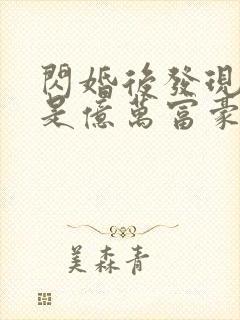 閃婚後發現
是億萬富豪
美森青